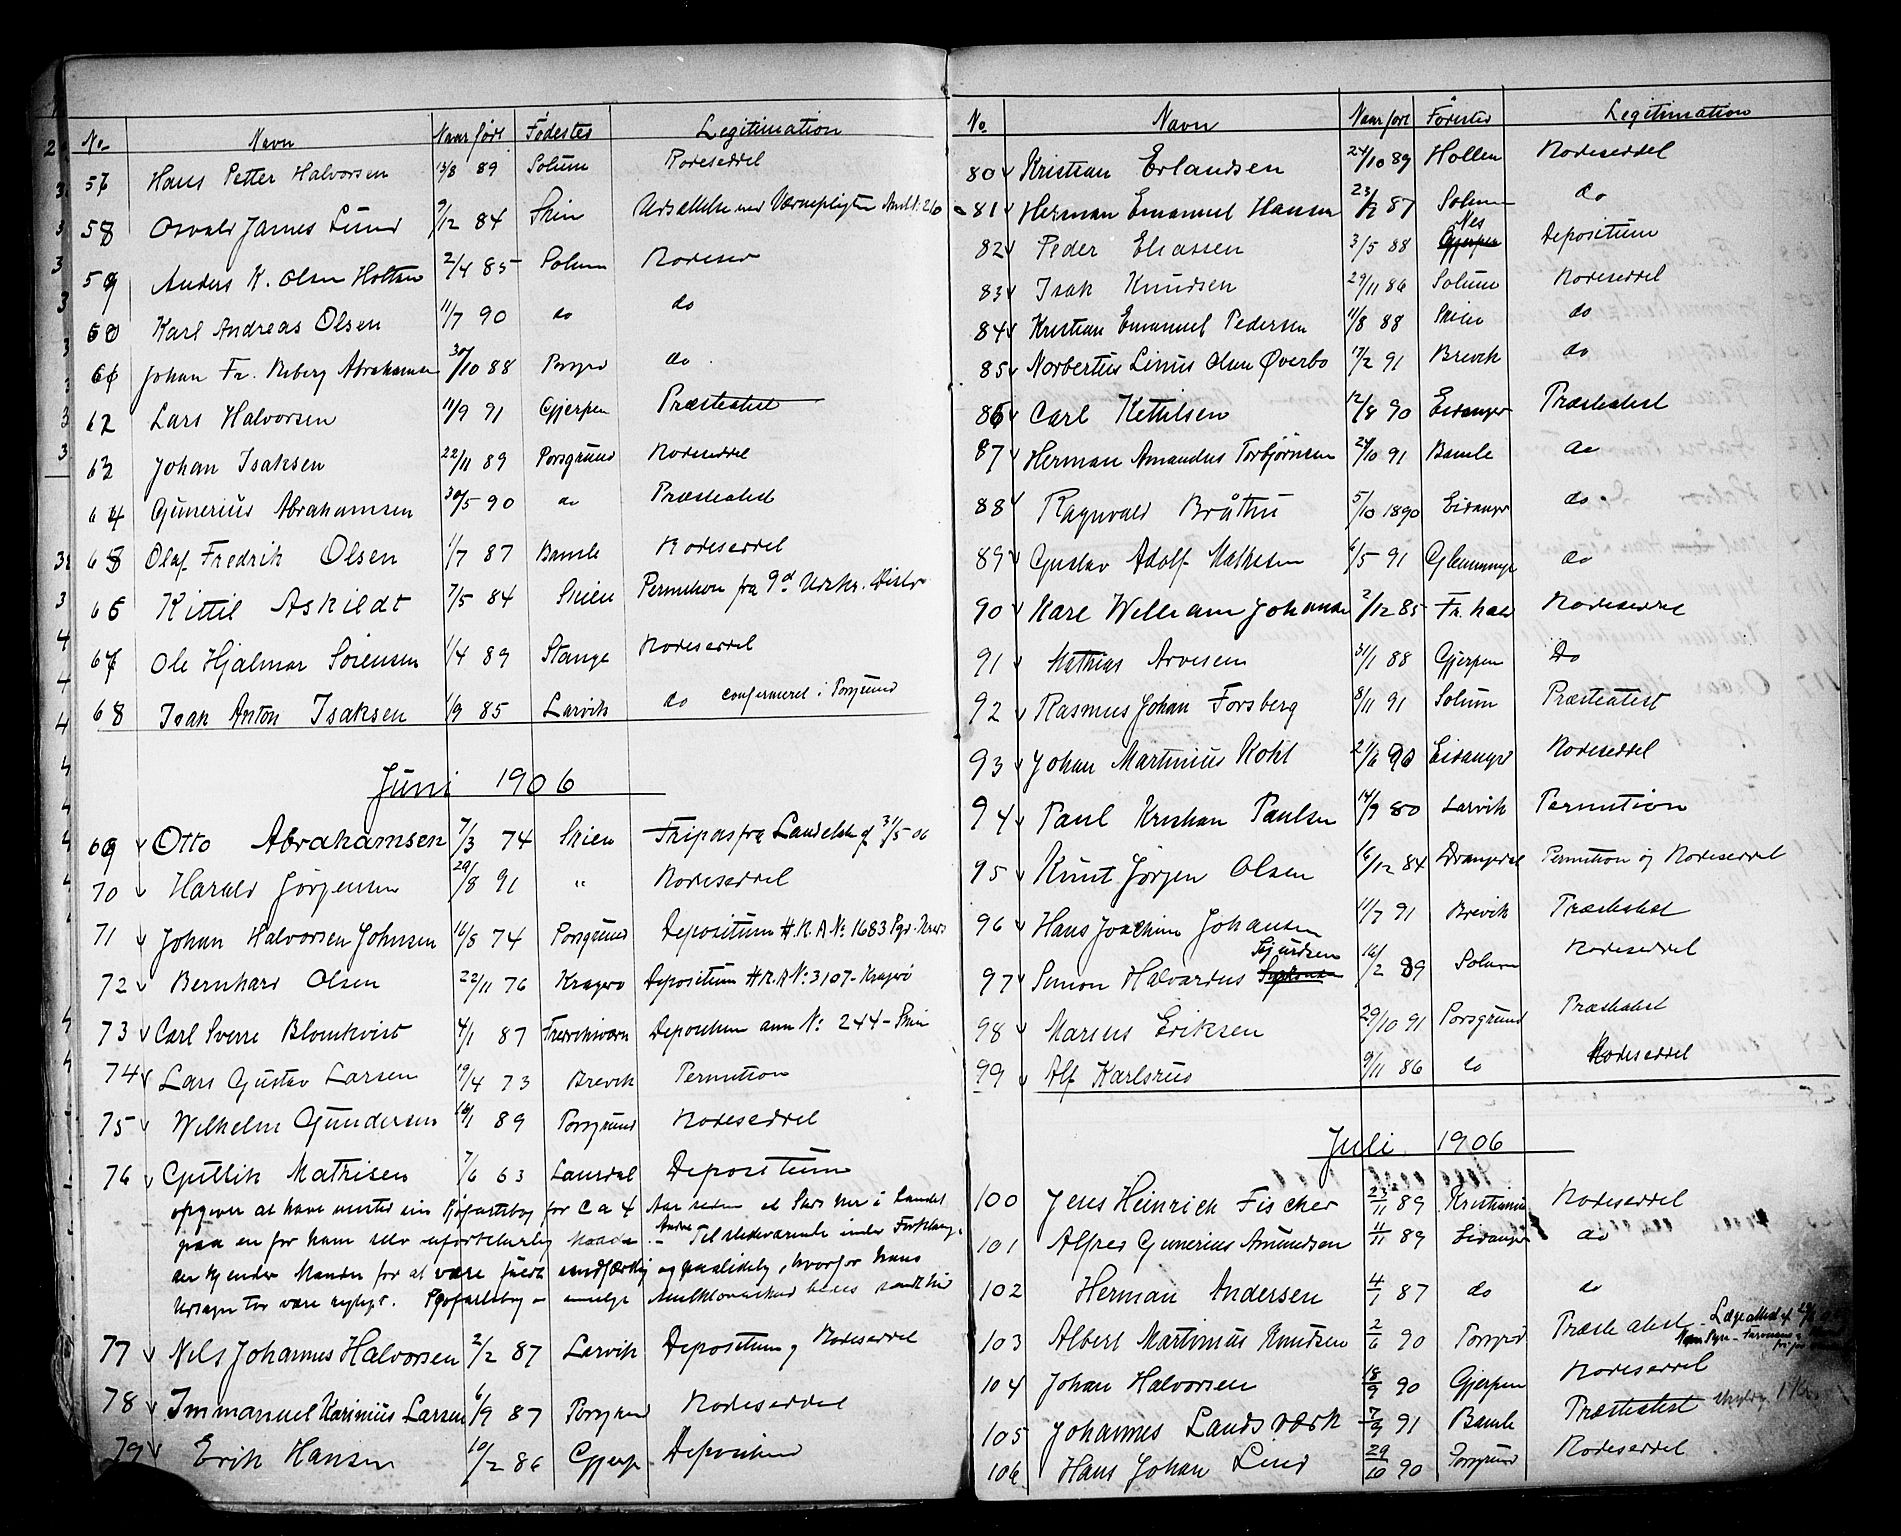 No Navn Naar født Fødested Legitimation
57 Hans Petter Halvorsen 13/8 89 Solum Rodeseddel
58 Osvald James Lund 9/12 84 Skien Udsættelse med Værnepligten
59 Anders K. Olsen Holtan 2/4 85 Solum Rodesed
60 Karl Andreas Olsen 11/7 90 do do
61 Johan Fr. Abrahamsen 30/10 88 Porsgrd do
62 Lars Halvorsen 11/9 91 Gjerpen Præsteatest
63 Johan Isaksen 22/11 89 Porsgrund Rodeseddel
64 Gunerius Abrahamsen 30/5 90 do Præsteatest
65 Olaf Fredrik Olsen 1/7 87 Bamle Rodeseddel
66 Kittil Askildt 7/5 84 Skien Permition fra 9d Udskr. Distr
67 Ole Hjalmar Sörensen 1/4 89 Stange Rodeseddel
68 Isak Anton Isaksen 1/9 85 Larvik do confirmeret i Porsgrund
Juni 1906
69 Otto Abrahamsen 7/3 74 Skien Fripas fra Landets af 31/5 06
70 Harald Jørgensen 29/8 91 " Rodeseddel
71 Johan Halvorsen Johnsen 16/8 74 Porsgrund Depositum H.R.A No 1683 Pgr. Kreds
72 Bernhard Olsen 22/11 76 Kragerø Depositum H.R.A No: 3107 - Kragerø
73 Carl Sverre Blomkvist 4/1 87 Fredriksværn Depositum ann No: 244 - Skien
74 Lars Gustav Larsen 19/4 73 Brevik Permition
75 Wilhelm Gundersen 16/1 89 Porsgrund Rodeseddel
76 Gullik Mathisen 7/6 63 Laurdal Depositum
opgiver at have mistet sin Sjøfartsbog for Ca 4 Aar siden et Sted her i Landet
paa en for ham selv uforklarlig Maade. - Andre Tilstedeværende under Forklaring.
der kjender Manden for at være fuldt sandfærdig og paalidelig, hvorfor hans
Udsagn tør være nøiagt. Sjøfartsbog -
77 Nils Johannes Halvorsen 2/2 87 Larvik Depositum og Rodeseddel
78 Immanuel Karinius Larsen 6/9 87 Porsgrund Rodeseddel
79 Erik Hansen 10/2 86 Gjerp Depositum
No Navn Naar født Fødested Legitimation
80 Kristian Erlandsen 24/10 89 Hollen Rodeseddel
81 Herman Emanuel Hansen 23/2 87 Solum do
82 Peder Eliassen 3/5 88 Nes Gjerpen Depositum
83 Isak Knudsen 29/11 86 Solum Rodeseddel
84 Kristian Emanuel Pedersen 11/8 88 Skien do
85 Norbertus Linus Olsen Øverbø 17/2 91 Brevik do
86 Carl Kettilsen 12/8 90 Eidanger Præsteatest
87 Herman Amandus Torbjørnsen 24/10 91 Bamle do
88 Ragnvald Bråthu 5/10 1890 Eidanger do
89 Gustav Adolf Mathisen 6/5 91 Glemminge do
90 Karl William Johansen 2/12 85 Fr. hald Rodeseddel
91 Mathias Arvesen 31/1 88 Gjerpen Do
92 Rasmus Johan Forsberg 8/11 91 Solum Præsteatest
93 Johan Martinius Kohl 21/6 90 Eidanger Rodeseddel
94 Paul Kristian Paulsen 14/9 80 Larvik Permition
95 Knut Jørgen Olsen 16/12 84 Drangedal Permition og Rodeseddel
96 Hans Joachim Johansen 11/7 91 Brevik Præsteatest
97 Simon Halvardus Sigurdsen 16/2 89 Solum Rodeseddel
98 Marius Eriksen 29/10 91 Porsgrund Præsteatest
99 Alf Karlsrud 9/11 86 do Rodeseddel
Juli 1906
100 Jens Heinrich Fischer 23/11 89 Kristiania Rodeseddel
101 Alfred Gunerius Amundsen 11/11 89 Eidanger do
102 Herman Andersen 4/1 87 do do
103 Albert Martinius Knudsen 2/6 90 Porsgrd Præsteatest - Lægeattest af
104 Johan Halvorsen 18/9 90 Gjerpen Rodeseddel
105 Johannes Landsværk 7/9 91 Bamle Præsteatest
106 Hans Johan Lund 29/10 90 Porsgrund Rodeseddel